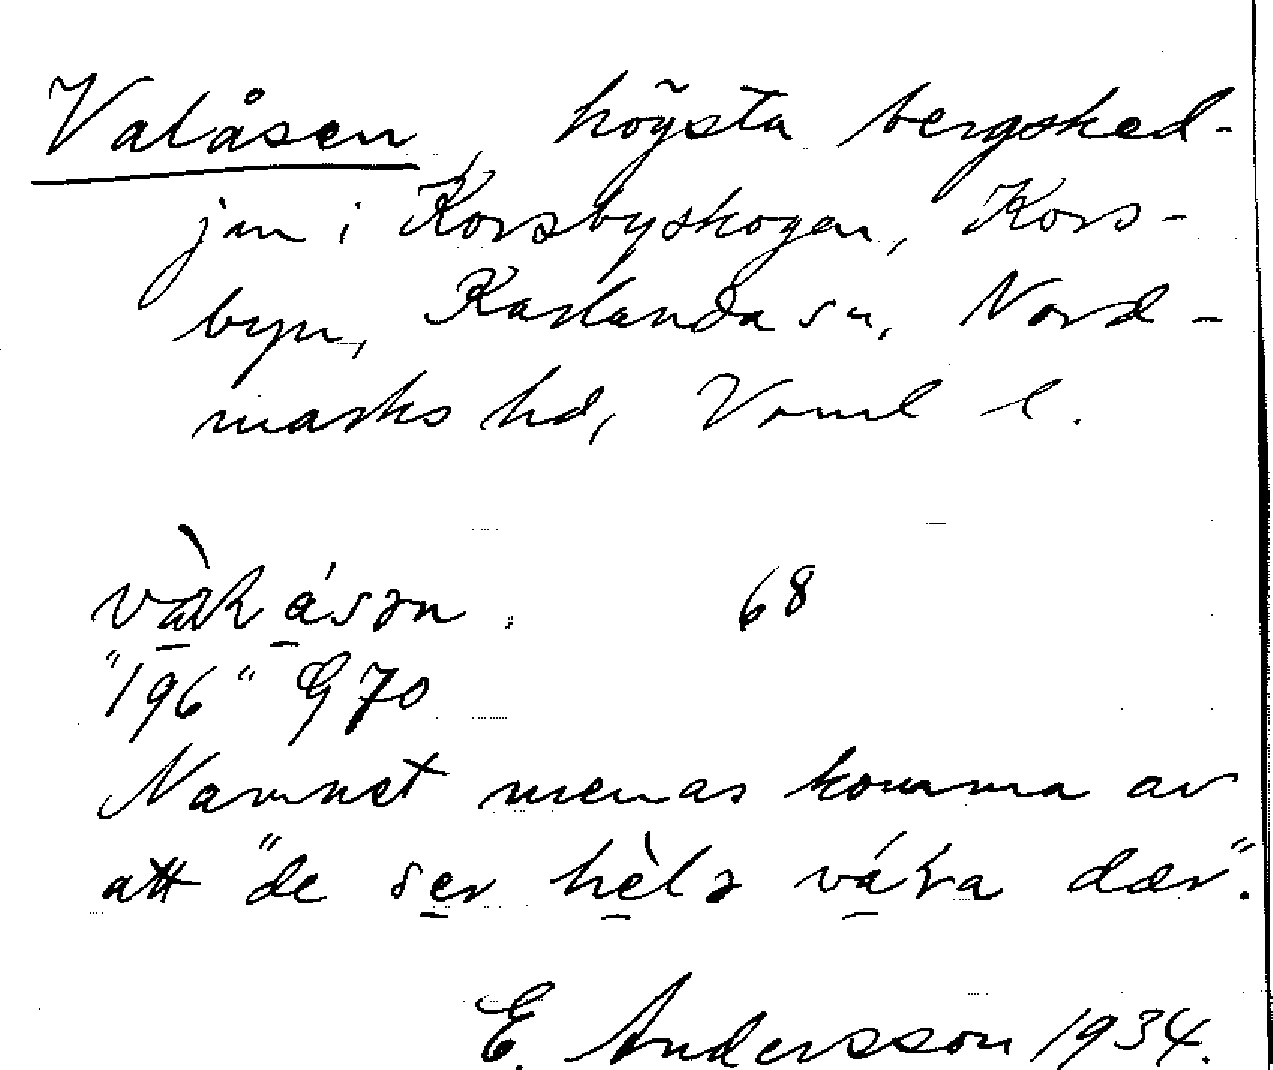 Valåsen, högsta bergsked-
jan i Korsbyskogen, Kors-
byn, Karlanda sn, Nord-
marks hd, Vrml l.
68
"196" G 70
Namnet menas komma av
att "de ser hèlɘ vára dær".
E. Andersson 1934.